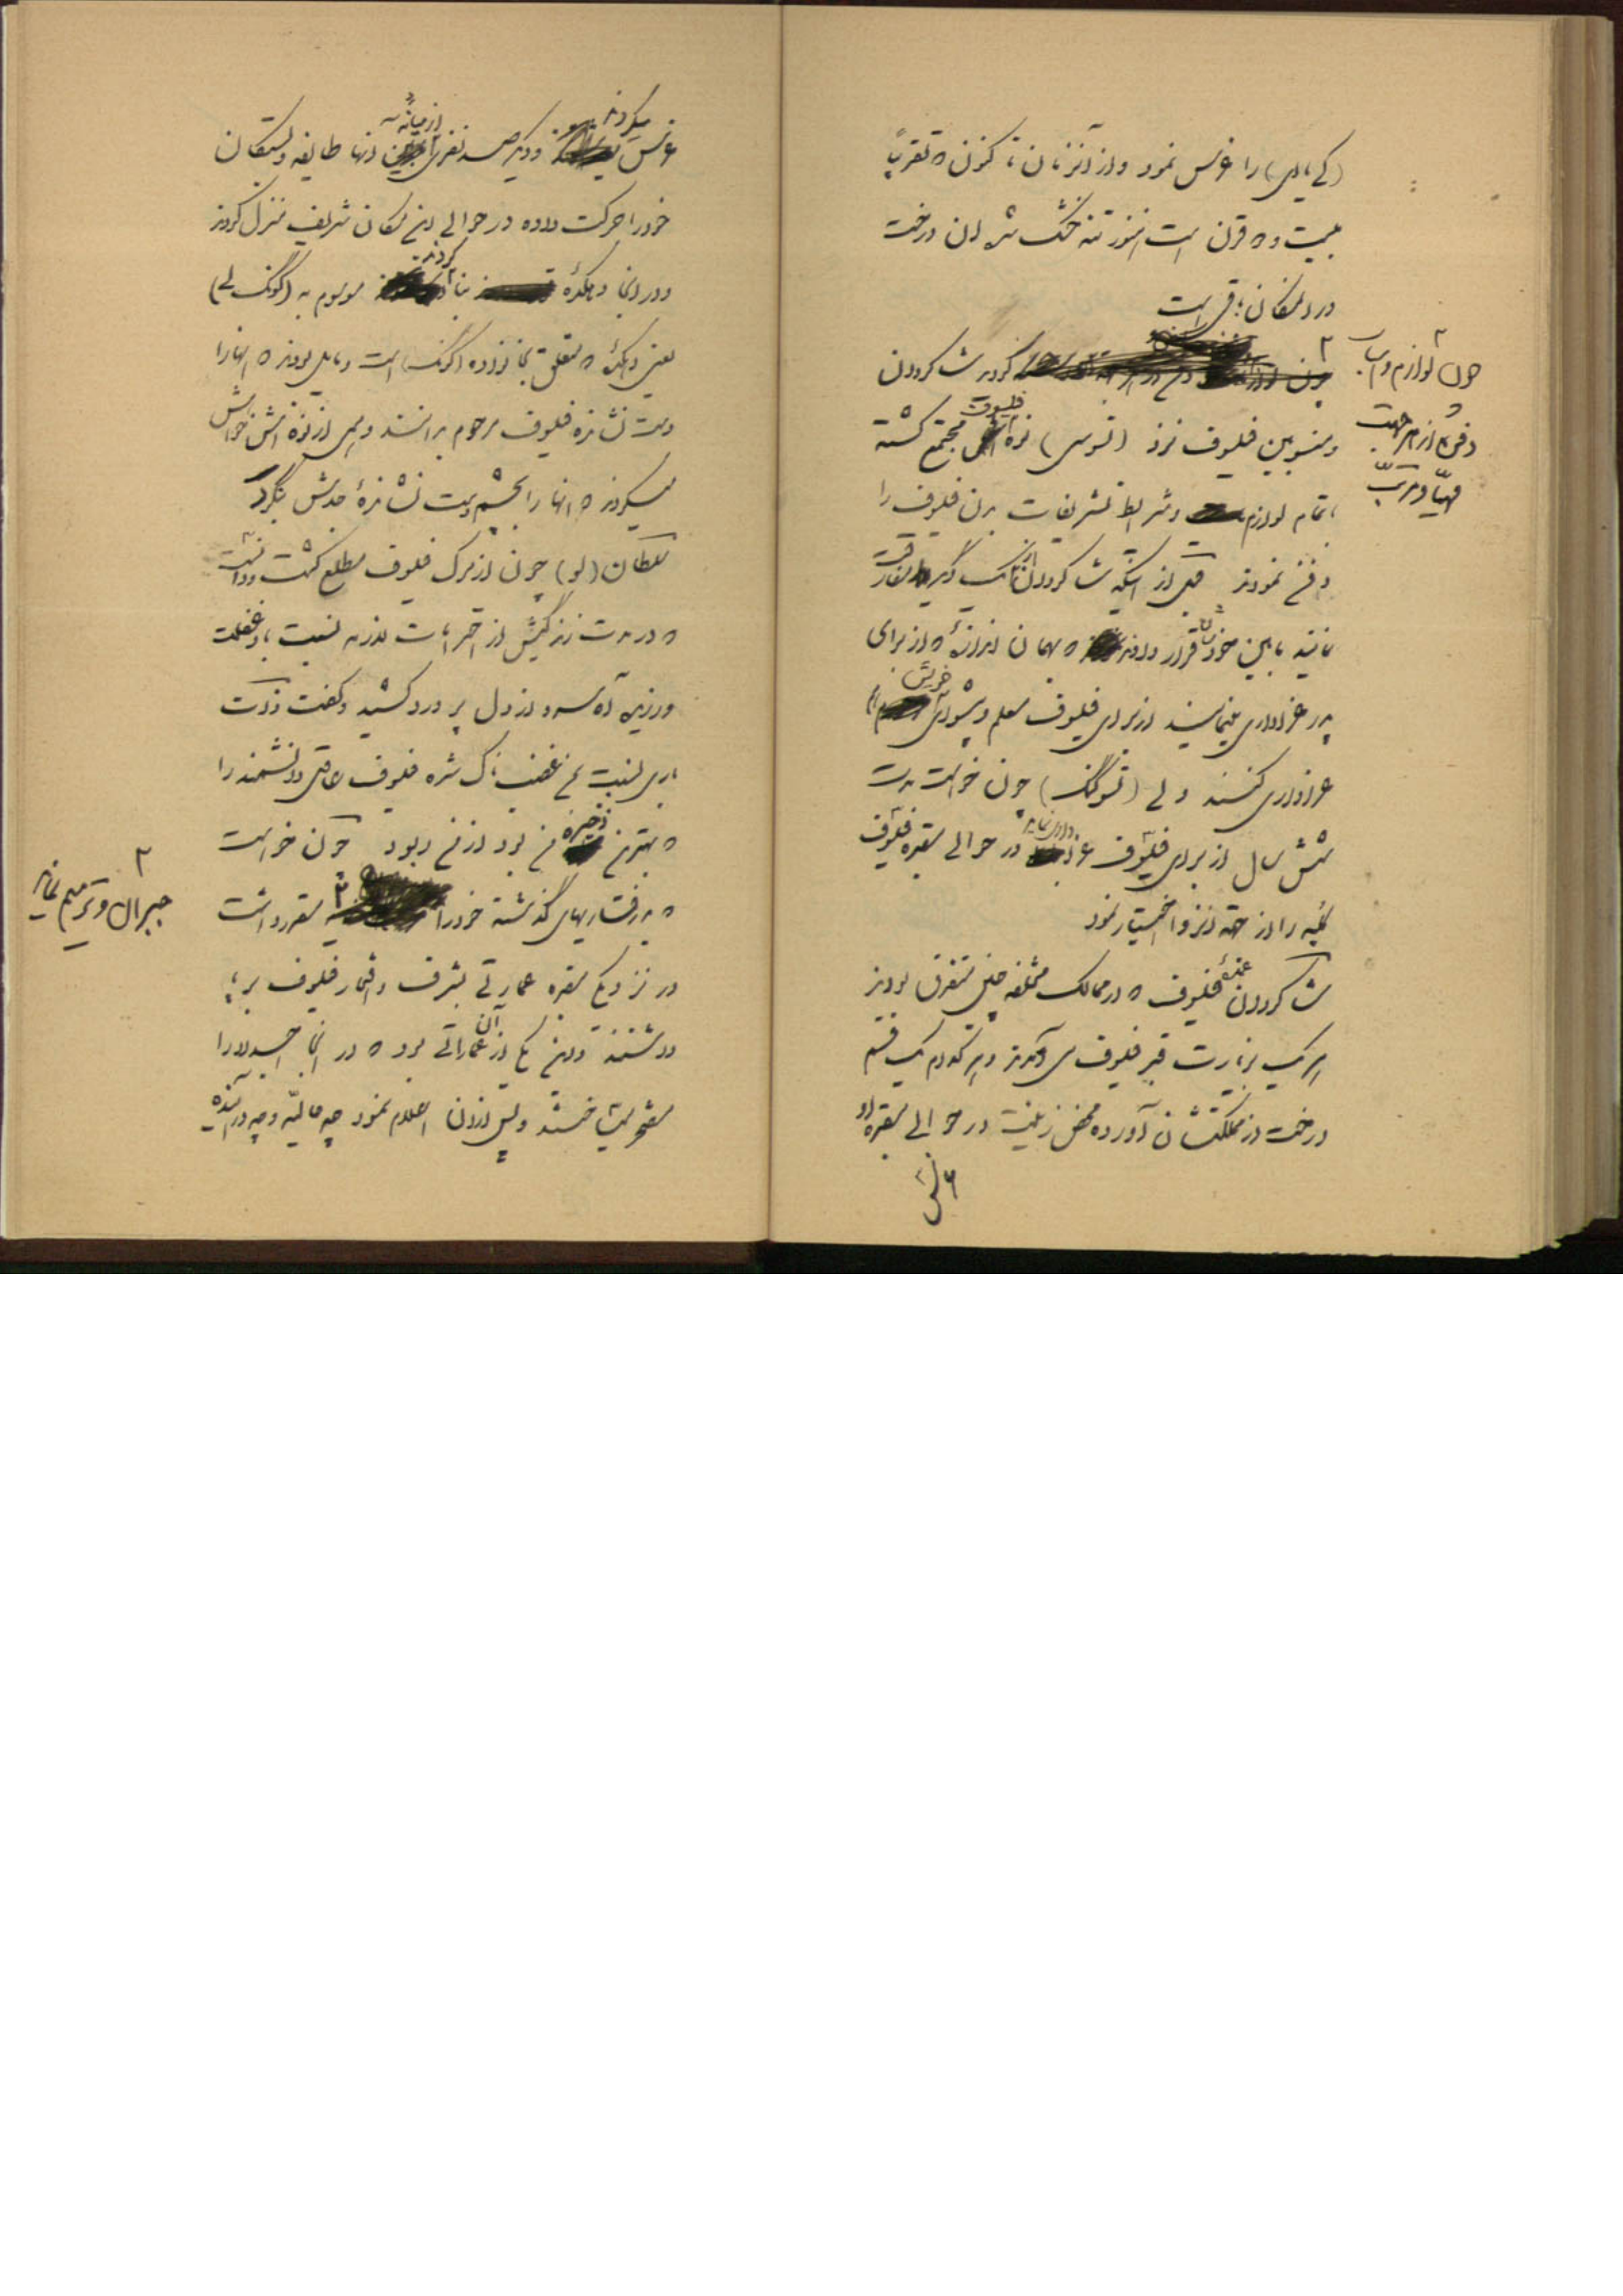 (کیایی) را غرس نمود و از آنزمان تا کنون که تقریباً
بیست و دو قرن است هنوز تنه خشک شده آن درخت
در آنمکان باقی است
چون لوازم و اسباب
دفن از هر جهت
مهیّا و مرتّب
گردید شاگردان
و منسوبین فیلسوف نزد (تسوسی) نوه فیلسوف مجتمع گشته
با تمام لوازم و شرایط تشریفات بدن فیلسوف را
دفن نمودند قبل از اینکه شاگردان از یک دیگر مفارقت
نمایند مابین خودشان قرار دادند که بهمان اندازه که از برای
پدر عزاداری مینمایند از برای فیلسوف معلم و پیشوای خویش هم
عزاداری کنند ولی (تسو گنگ) چون خواست مدت
شش سال از برای فیلسوف عزاداری نماید در حوالی مقبره فیلسوف
کلبه را از جهة انزوا اختیار نمود
شاگردان فیلسوف که در ممالک مختلفه چین متفرق بودند
هر یک بزیارت قبر فیلسوف می‌آمدند و هر کدام یک قسم
درخت از مملکتشان آورده محض زینت در حوالی مقبره او
غرس میکردند و دیگر صد نفری از میانه آنها طایفه و بستگان
خود را حرکت داده در حوالی این مکان شریف منزل کردند
و در آنجا دهکده بنا کردند موسوم به (گونگ لی)
یعنی دهکده که متعلق بخانواده (گونگ) است و مایل بودند که آنها را
دست نشانده فیلسوف مرحوم بدانند و همی از نوه اش خواهش
میکردند که آنها را بچشم دست نشانده جدش بنگرد
سلطان (لو) چون از مرگ فیلسوف مطلع گشت و دانست
که در مدت زندگیش از احترامات لازمه نسبت باو غفلت
ورزیده آه سرد از دل پر درد کشید و گفت ذات
باری نسبت بمن غضبناک شده فیلسوف عاقل و دانشمند را
که بهترین ذخیره من بود از من ربود چون خواست
که بد رفتاریهای گذشته خود را
جبران و ترمیم نماید
مقرر داشت
در نزدیکی مقبره عمارتی بشرف و افتخار فیلسوف بر پا
داشتند و این یکی از آن عماراتی بود که در آنجا اجداد را
مفتخر میساختند و پس از آن اعلام نمود چه حالیّه و چه در آینده